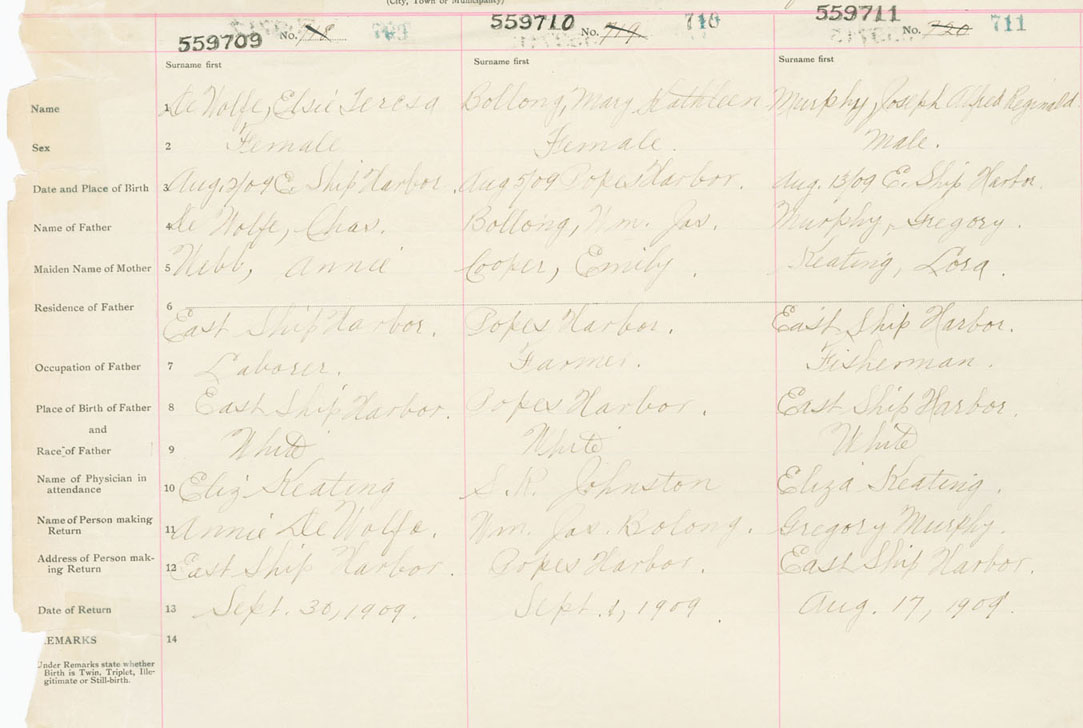 (City, Town or Municipality)
559709 No. 718 709
559710 No. 719 710
559711 No. 720 711
Surname first Surname first Surname first
Name 1 De Wolfe, Elsie Teresa Bollong, Mary Kathleen Murphy, Joseph Alfred Reginald
Sex 2 Female Female. Male.
Date and Place of Birth 3 Aug. /09 E. Ship Harbor. Aug 5/09 Popes Harbor. Aug. 13/09 E. Ship Harbor.
Name of Father 4 De Wolfe, Chas. Bollong, Wm. Jas. Murphy, Gregory.
Maiden Name of Mother 5 Webb, Annie Cooper, Emily. Keating, Lora.
Residence of Father 6 East Ship Harbor. Popes Harbor. East Ship Harbor.
Occupation of Father 7 Laborer. Farmer. Fisherman.
Place of Birth of Father 8 East Ship Harbor. Popes Harbor. East Ship Harbor.
and
Race of Father 9 White White White
Name of Physician in
attendance 10 Eliz Keating S.R. Johnston Eliza Keating.
Name of Person making
Return 11 Annie De Wolfe. Wm. Jas. Bolong. Gregory Murphy.
Address of Person mak-
ing Return 12 East Ship Harbor. Popes Harbor. East Ship Harbor.
Date of Return 13 Sept. 30, 1909. Sept. 1, 1909. Aug. 17, 1909.
EMARKS 14
Under Remarks state whether
Birth is Twin, Triplet, Ille-
gitimate or Still-birth.